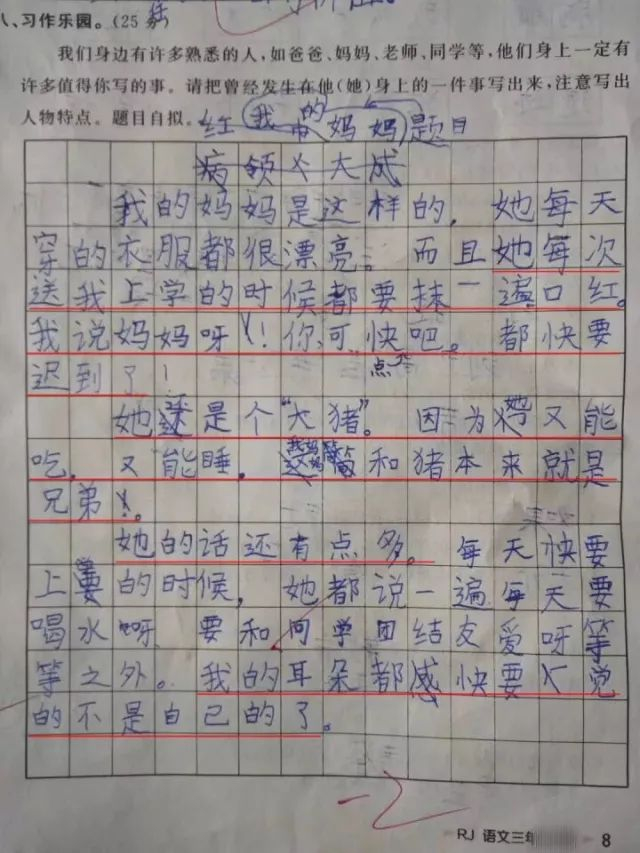 八、习作乐园。(25 分)
我们身边有许多熟悉的人,如爸爸、妈妈、老师、同学等,他们身上一定有
许多值得你写的事。请把曾经发生在他(她)身上的一件事写出来,注意写出
人物特点。题目自拟。
红 我的妈妈 题目
大成
我的妈妈是这样的,她每天
穿的衣服都很漂亮。而且她每次
送我上学的时候都要抹一遍口红。
我说妈妈呀!你可快点吧。都快要
迟到了!
她还是个“大猪”。因为她又能
吃,又能睡。我妈妈和猪本来就是
兄弟。
她的话还有点多。每天快要
上的时候,她都说一遍每天要
喝水呀要和同学团结友爱呀等
等之外。我的耳朵都感快要觉
的不是自己的了。
RJ 语文三年
8